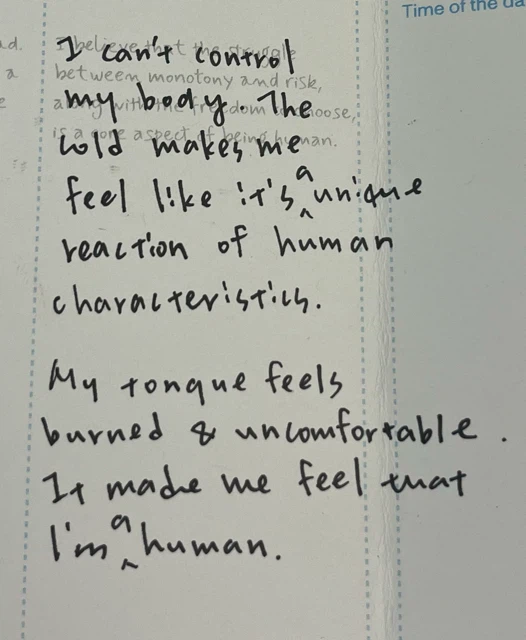 Time of the da
d.
a
e
I believe that the struggle
between monotony and risk,
along with the freedom to choose,
is a core aspect of being human.
I can't control
my body. The
cold makes me
feel like it's ^a unique
reaction of human
characteristics.
My tongue feels
burned & uncomfortable.
It made me feel that
I'm ^a human.